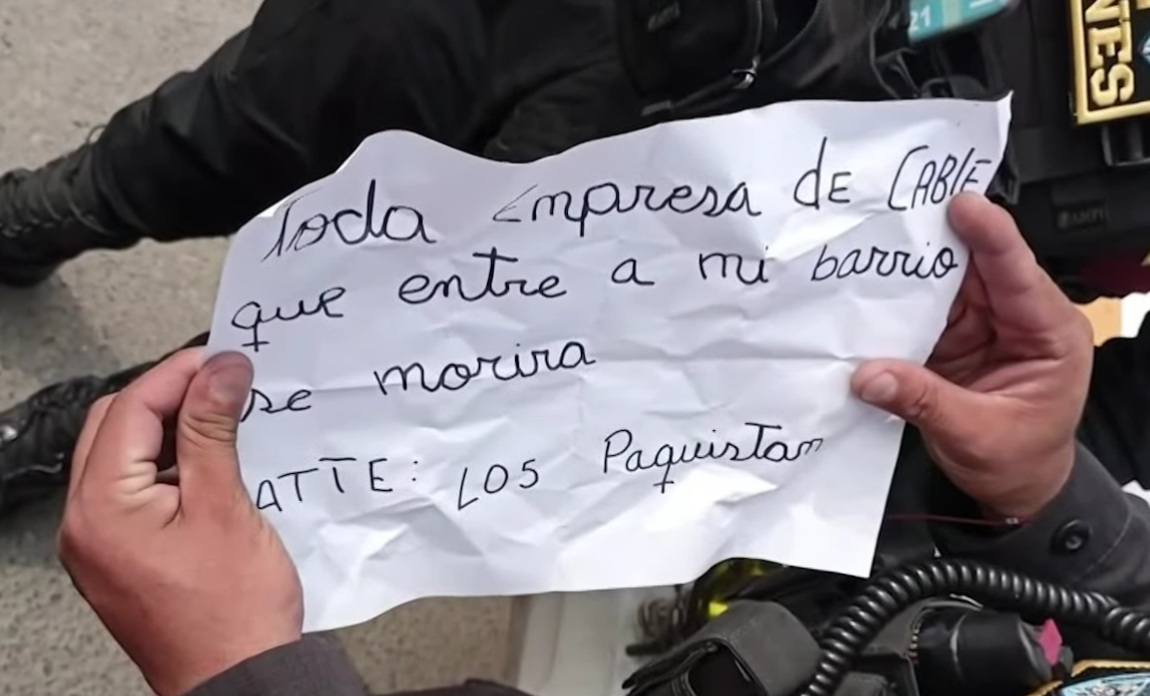 Toda Empresa dE CABLE
que entre a mi barrio
se morira
ATTE: LOS Paquistan
21
NES